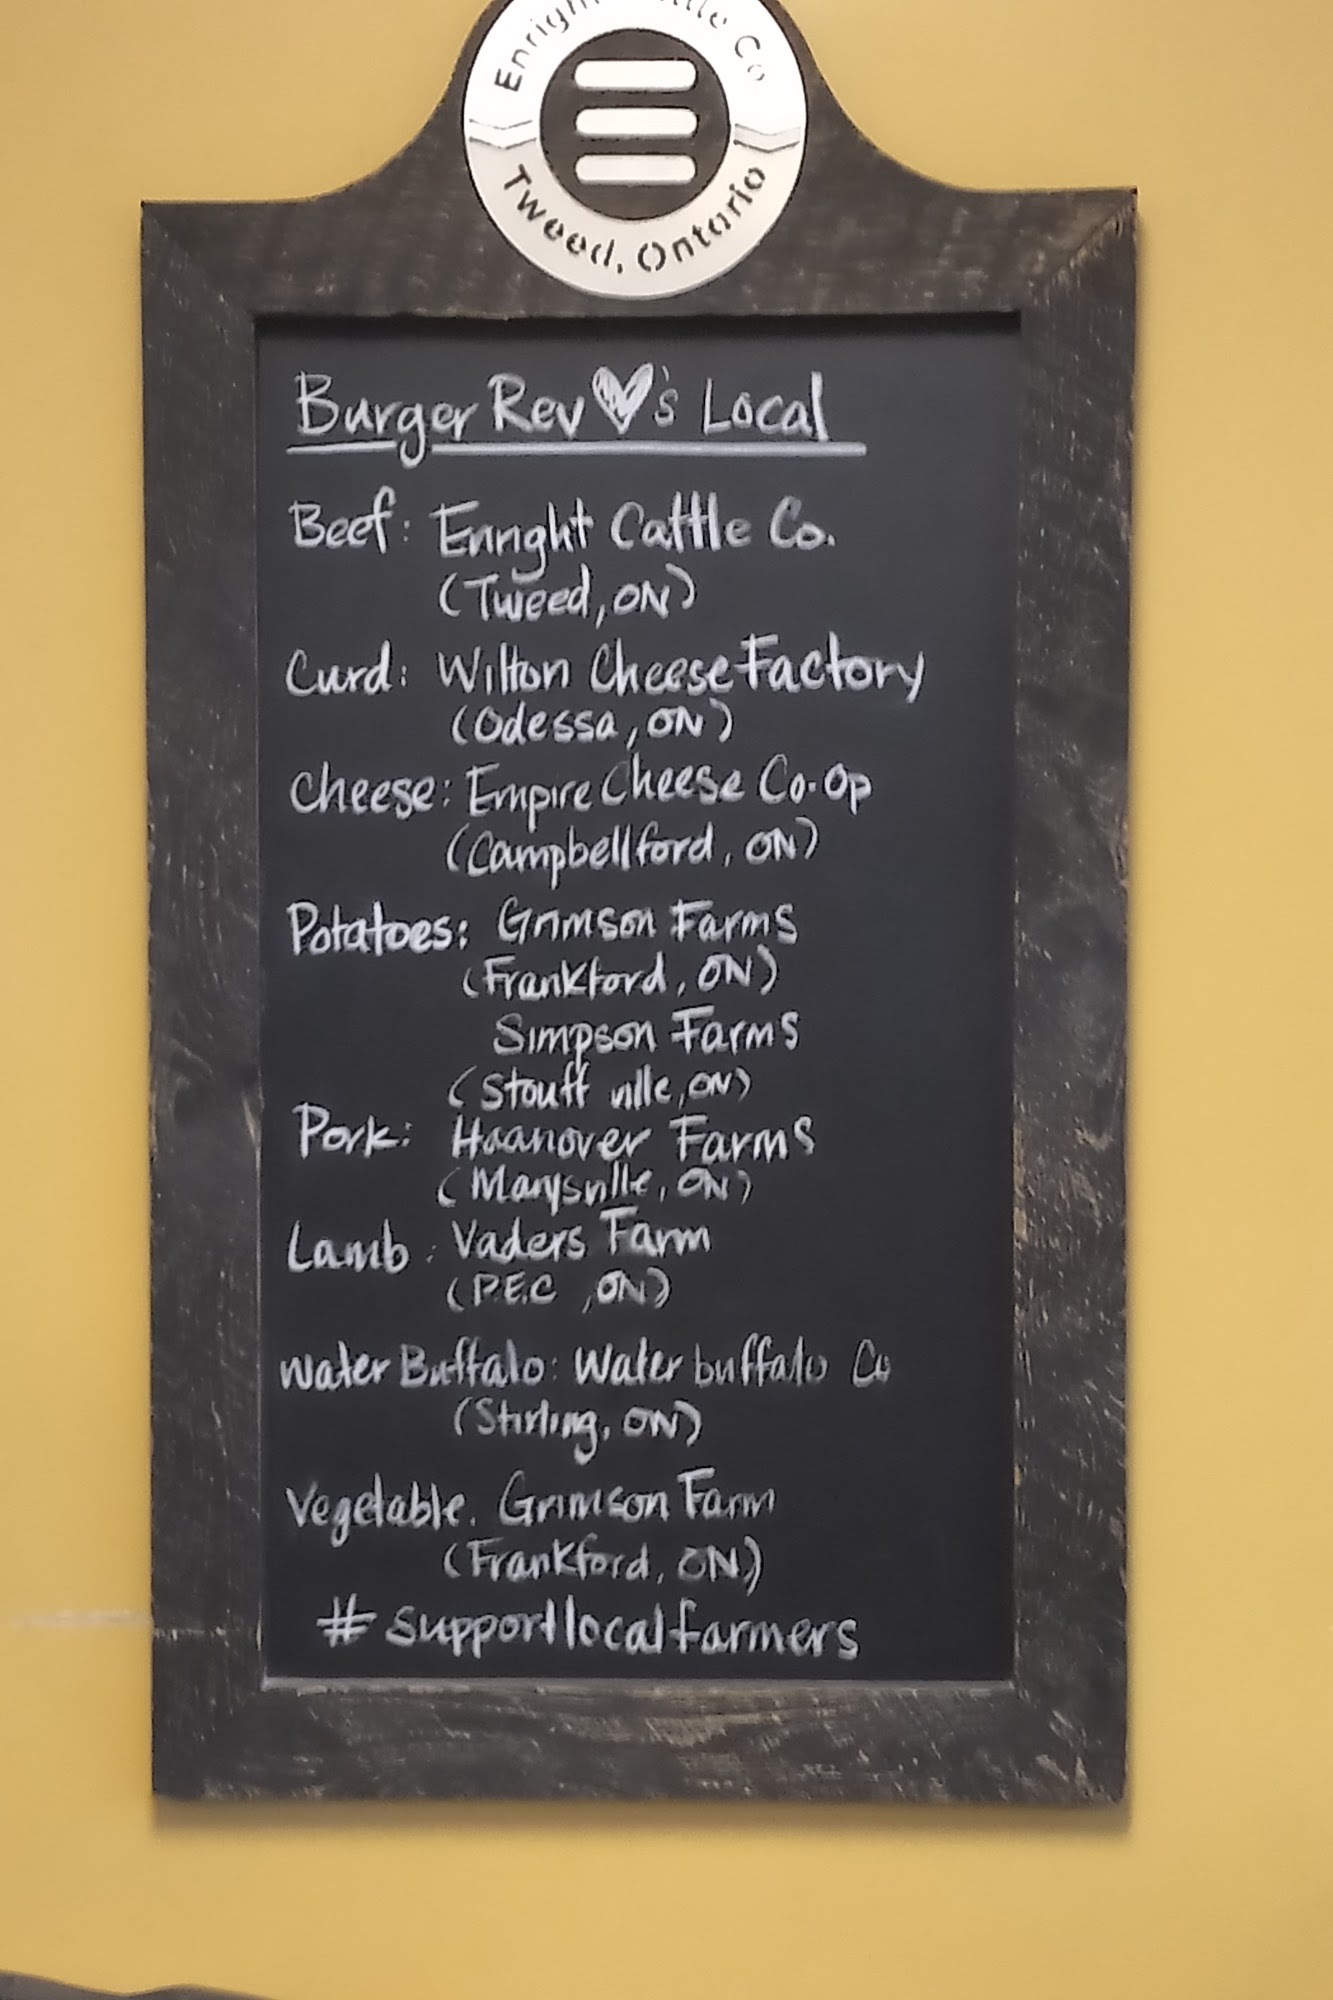 Enright Cattle Co
Tweed, Ontario
Burger Rev ♥'s Local
Beef: Enright Cattle Co.
(Tweed, ON)
Curd: Wilton Cheese Factory
(Odessa, ON)
Cheese: Empire Cheese Co-Op
(Campbellford, ON)
Potatoes: Grimson Farms
(Frankford, ON)
Simpson Farms
(Stouffville, ON)
Pork: Haanover Farms
(Marysville, ON)
Lamb: Vaders Farm
(P.E.C, ON)
Water Buffalo: Water buffalo Co
(Stirling, ON)
Vegetable. Grimson Farm
(Frankford, ON)
#supportlocalfarmers